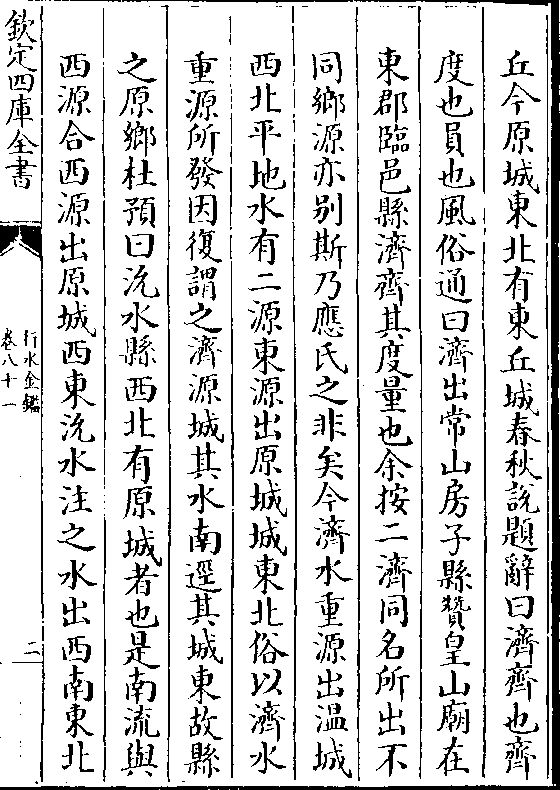 丘今原城東北有東丘城春秋説題辭曰濟齊也齊
度也員也風俗通曰濟出常山房子縣贊皇山廟在
東郡臨邑縣濟齊其度量也余按二濟同名所出不
同鄉源亦别斯乃應氏之非矣今濟水重源出温城
西北平地水有二源東源出原城城東北俗以濟水
重源所發因復謂之濟源城其水南逕其城東故縣
之原鄉杜預曰沇水縣西北有原城者也是南流與
西源合西源出原城西東沇水注之水出西南東北
欽定四庫全書
行水金鑑
卷八十一
二